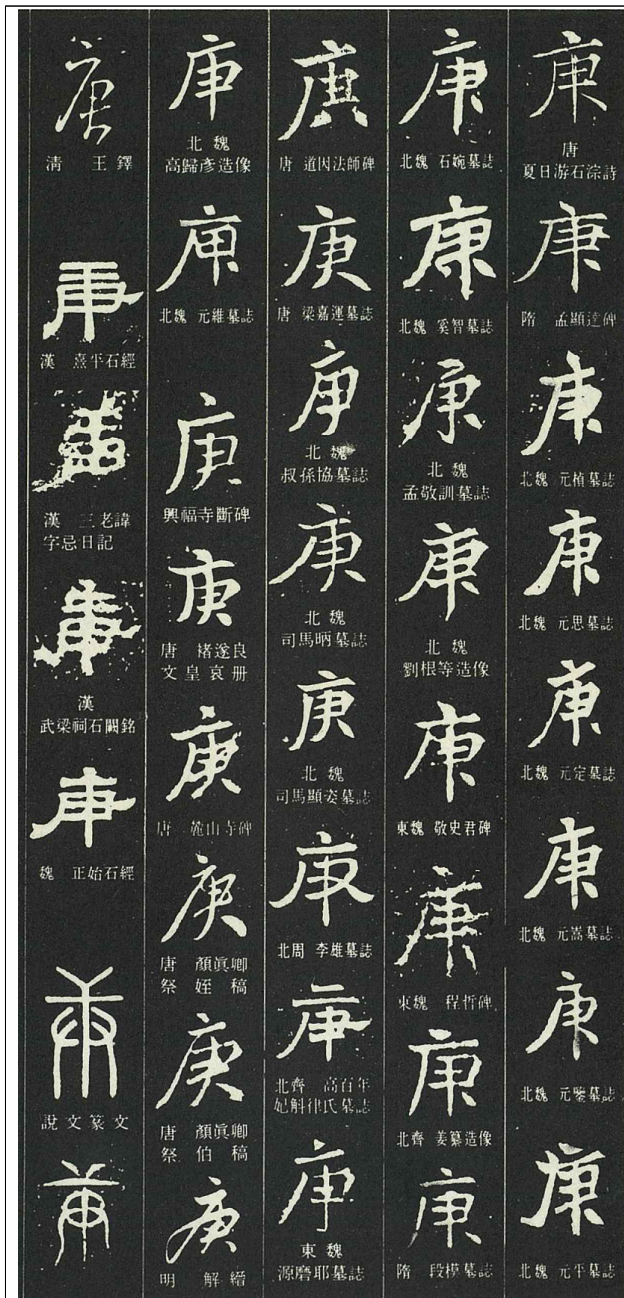 庚
唐
夏日游石淙詩
庚
隋 孟顯達碑
庚
北魏 元楨墓誌
庚
北魏 元思墓誌
庚
北魏 元定墓誌
庚
北魏 元嵩墓誌
庚
北魏 元鑒墓誌
庚
北魏 元平墓誌
庚
北魏 石婉墓誌
庚
北魏 奚智墓誌
庚
北魏
孟敬訓墓誌
庚
北魏
劉根等造像
庚
東魏 敬史君碑
庚
東魏 程哲碑
庚
北齊 姜纂造像
庚
隋 段模墓誌
庚
唐 道因法師碑
庚
唐 梁嘉運墓誌
庚
北魏
叔孫協墓誌
庚
北魏
司馬昞墓誌
庚
北魏
司馬顯姿墓誌
庚
北周 李雄墓誌
庚
北齊 高百年
妃斛律氏墓誌
庚
東魏
源磨耶墓誌
庚
北魏
高歸彥造像
庚
北魏 元維墓誌
庚
興福寺斷碑
庚
唐 褚遂良
文皇哀册
庚
唐 麓山寺碑
庚
唐 顏眞卿
祭姪稿
庚
唐 顏眞卿
祭伯稿
庚
明 解縉
庚
清 王鐸
庚
漢 熹平石經
庚
漢 三老諱
字忌日記
庚
漢
武梁祠石闕銘
庚
魏 正始石經
庚
說文篆文
庚